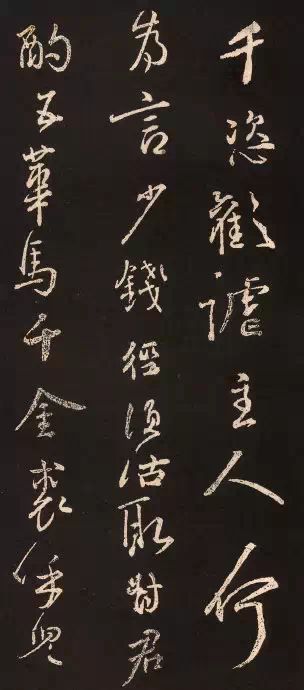 千恣歡謔主人何
為言少錢徑須沽取對君
酌五華馬千金裘呼兒